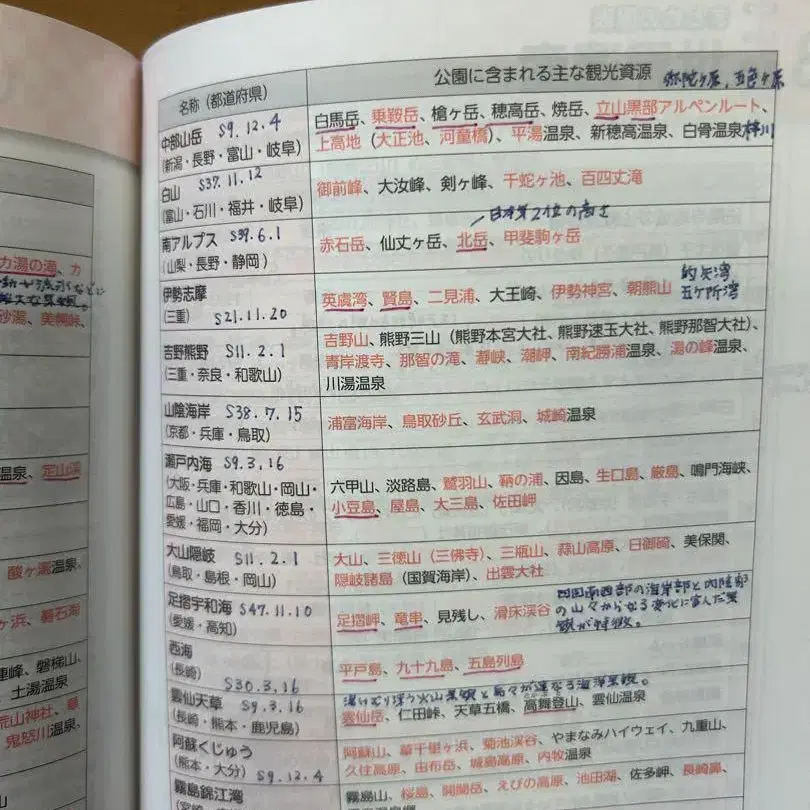 カ湯の滝、カ
砂湯、美幌峠、
温泉、定山渓
酸ヶ湯温泉、
ヶ浜、碁石海
連峰、磐梯山、
土湯温泉
荒山神社、華
鬼怒川温泉、
名称（都道府県）
公園に含まれる主な観光資源 弥陀ヶ原、五色ヶ原
中部山岳 S9.12.4
（新潟・長野・富山・岐阜）
白馬岳、乗鞍岳、槍ヶ岳、穂高岳、焼岳、立山黒部アルペンルート、
上高地（大正池、河童橋）、平湯温泉、新穂高温泉、白骨温泉 梓川
白山 S37.11.12
（富山・石川・福井・岐阜）
御前峰、大汝峰、剣ヶ峰、千蛇ヶ池、百四丈滝
日本第2位の高さ
南アルプス S39.6.1
（山梨・長野・静岡）
赤石岳、仙丈ヶ岳、北岳、甲斐駒ヶ岳
伊勢志摩
（三重） S21.11.20
英虞湾、賢島、二見浦、大王崎、伊勢神宮、朝熊山
的矢湾
五ヶ所湾
吉野熊野 S11.2.1
（三重・奈良・和歌山）
吉野山、熊野三山（熊野本宮大社、熊野速玉大社、熊野那智大社）、
青岸渡寺、那智の滝、瀞峡、潮岬、南紀勝浦温泉、湯の峰温泉、
川湯温泉
山陰海岸 S38.7.15
（京都・兵庫・鳥取）
浦富海岸、鳥取砂丘、玄武洞、城崎温泉
瀬戸内海 S9.3.16
（大阪・兵庫・和歌山・岡山・
広島・山口・香川・徳島・
愛媛・福岡・大分）
六甲山、淡路島、鷲羽山、鞆の浦、因島、生口島、厳島、鳴門海峡、
小豆島、屋島、大三島、佐田岬
大山隠岐 S11.2.1
（鳥取・島根・岡山）
大山、三徳山（三佛寺）、三瓶山、蒜山高原、日御碕、美保関、
隠岐諸島（国賀海岸）、出雲大社
足摺宇和海 S47.11.10
（愛媛・高知）
足摺岬、竜串、見残し、滑床渓谷
四国南西部の海岸部と内陸部
の山々からなる変化に富んだ景
観が特徴。
西海
（長崎） S30.3.16
平戸島、九十九島、五島列島
雲仙天草 S9.3.16
（長崎・熊本・鹿児島）
火山景観と島々が連なる海洋景観。
雲仙岳、仁田峠、天草五橋、高舞登山、雲仙温泉
阿蘇くじゅう
（熊本・大分） S9.12.4
阿蘇山、草千里ヶ浜、菊池渓谷、やまなみハイウェイ、九重山、
久住高原、由布岳、城島高原、内牧温泉
霧島錦江湾
霧島山、桜島、開聞岳、えびの高原、池田湖、佐多岬、長崎鼻、